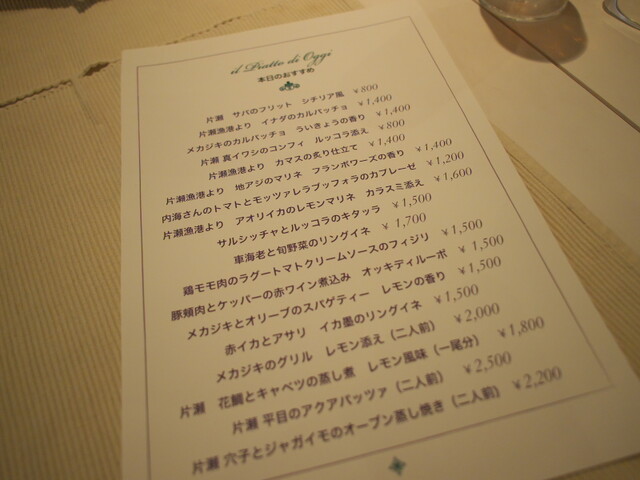 il Piatto di Oggi
本日のおすすめ
片瀬 サバのフリット シチリア風 ￥800
片瀬漁港より イナダのカルパッチョ ￥1,400
メカジキのカルパッチョ ういきょうの香り ￥1,400
片瀬 真イワシのコンフィ ルッコラ添え ￥800
片瀬漁港より カマスの炙り仕立て ￥1,400
片瀬漁港より 地アジのマリネ フランボワーズの香り ￥1,400
内海さんのトマトとモッツァレラブッフォラのカプレーゼ ￥1,200
片瀬漁港より アオリイカのレモンマリネ カラスミ添え ￥1,600
サルシッチャとルッコラのキタッラ ￥1,500
車海老と旬野菜のリングイネ ￥1,700
鶏モモ肉のラグートマトクリームソースのフィジリ ￥1,500
豚頬肉とケッパーの赤ワイン煮込み オッキディルーポ ￥1,500
メカジキとオリーブのスパゲティー レモンの香り ￥1,500
赤イカとアサリ イカ墨のリングイネ ￥1,500
メカジキのグリル レモン添え（二人前） ￥2,000
片瀬 花鯛とキャベツの蒸し煮 レモン風味（一尾分） ￥1,800
片瀬 平目のアクアパッツァ（二人前） ￥2,500
片瀬 穴子とジャガイモのオーブン蒸し焼き（二人前） ￥2,200